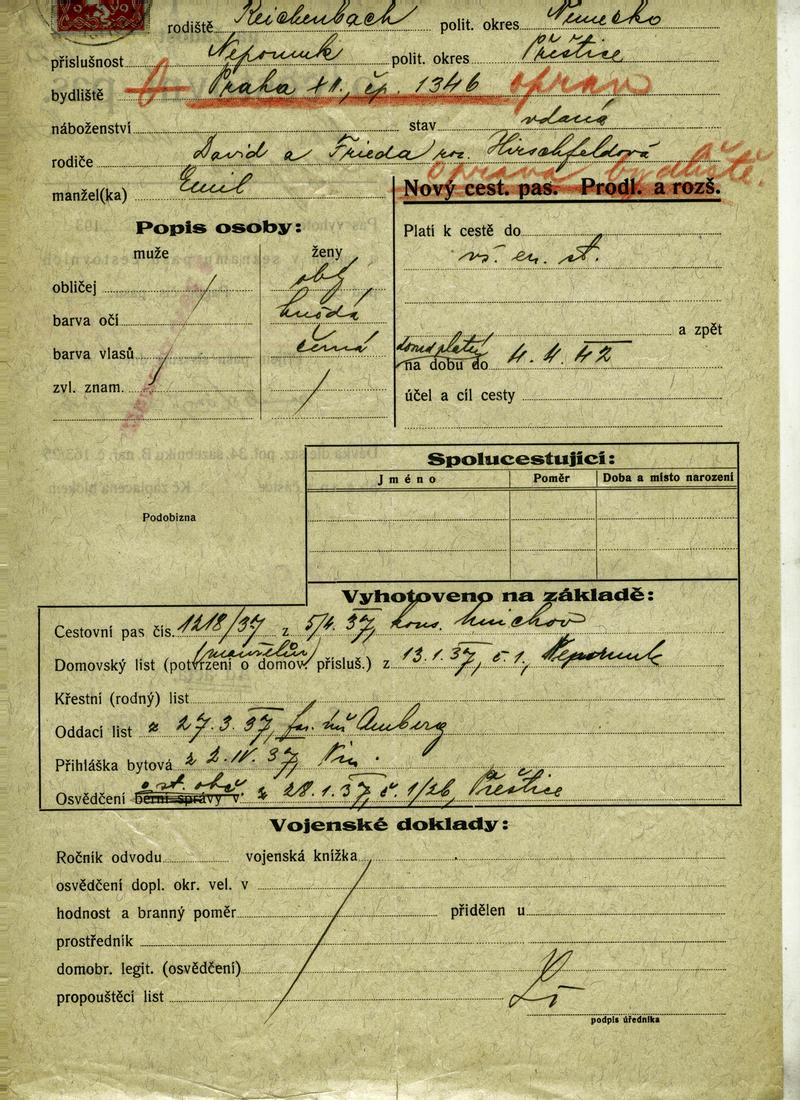 rodiště Reichenbach polit. okres Německo
příslušnost Nepomuk polit. okres Přeštice
bydliště Praha XII., čp. 1346 oprav
náboženství stav vdaná
rodiče David a Frieda roz. Hirschfeldová
oprava bydliště.
manžel(ka) Emil
Nový cest. pas. Prodl. a rozš.
Popis osoby:
muže ženy
obličej obl.
barva očí hnědá
barva vlasů černá
zvl. znam.
Platí k cestě do
vš. ev. st.
a zpět
na dobu do 4. 4. 42
účel a cíl cesty
Spolucestující:
Jméno Poměr Doba a místo narození
Podobizna
Vyhotoveno na základě:
Cestovní pas čís. 1218/37 z 5/4. 37, kons. Mnichov
(manželův)
Domovský list (potvrzení o domov. přísluš.) z 13. 1. 37, č. 1, Nepomuk
Křestní (rodný) list
Oddací list z 27. 3. 37, Amberg
Přihláška bytová z 2. IV. 37,
o st. obč.
Osvědčení berní správy v z 28. 1. 37, č. 1/26, Přeštice
Vojenské doklady:
Ročník odvodu vojenská knížka
osvědčení dopl. okr. vel. v
hodnost a branný poměr přidělen u
prostředník
domobr. legit. (osvědčení)
propouštěcí list
podpis úředníka